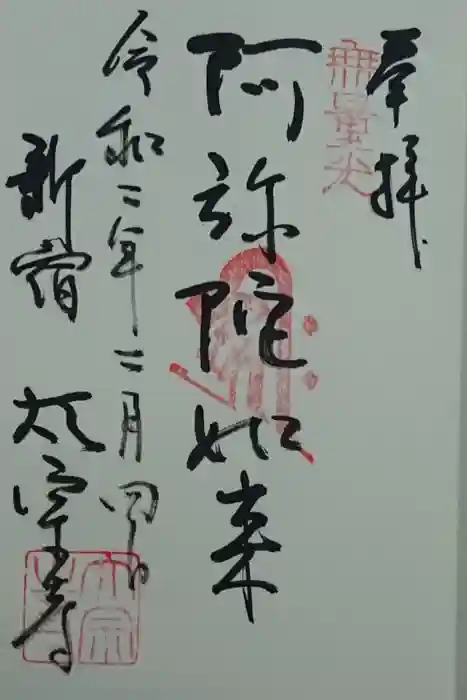 奉拝
無量光
阿弥陀如来
令和二年二月四日
新宿 太宗寺
太宗寺